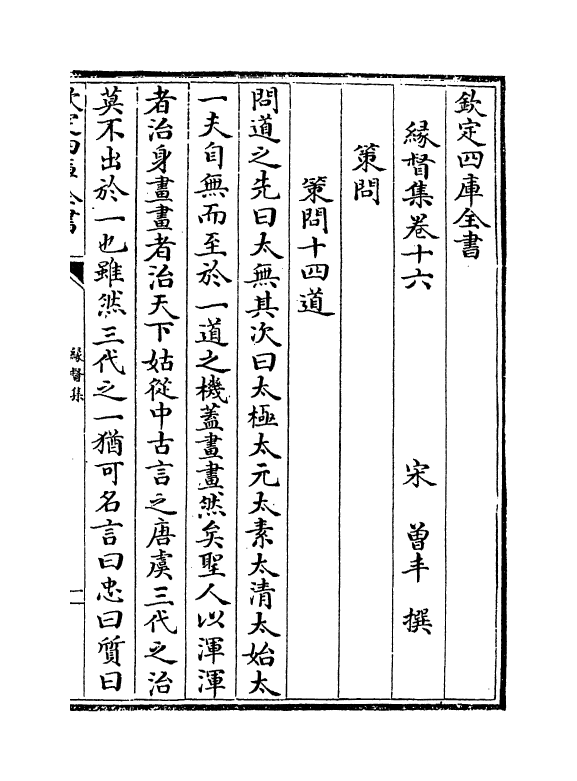 欽定四庫全書
緣督集卷十六
宋 曾丰 撰
策問
策問十四道
問道之先曰太無其次曰太極太元太素太清太始太
一夫自無而至於一道之機蓋畫畫然矣聖人以渾渾
者治身畫畫者治天下姑從中古言之唐虞三代之治
莫不出於一也雖然三代之一猶可名言曰忠曰質曰
欽定四庫全書
緣督集
一